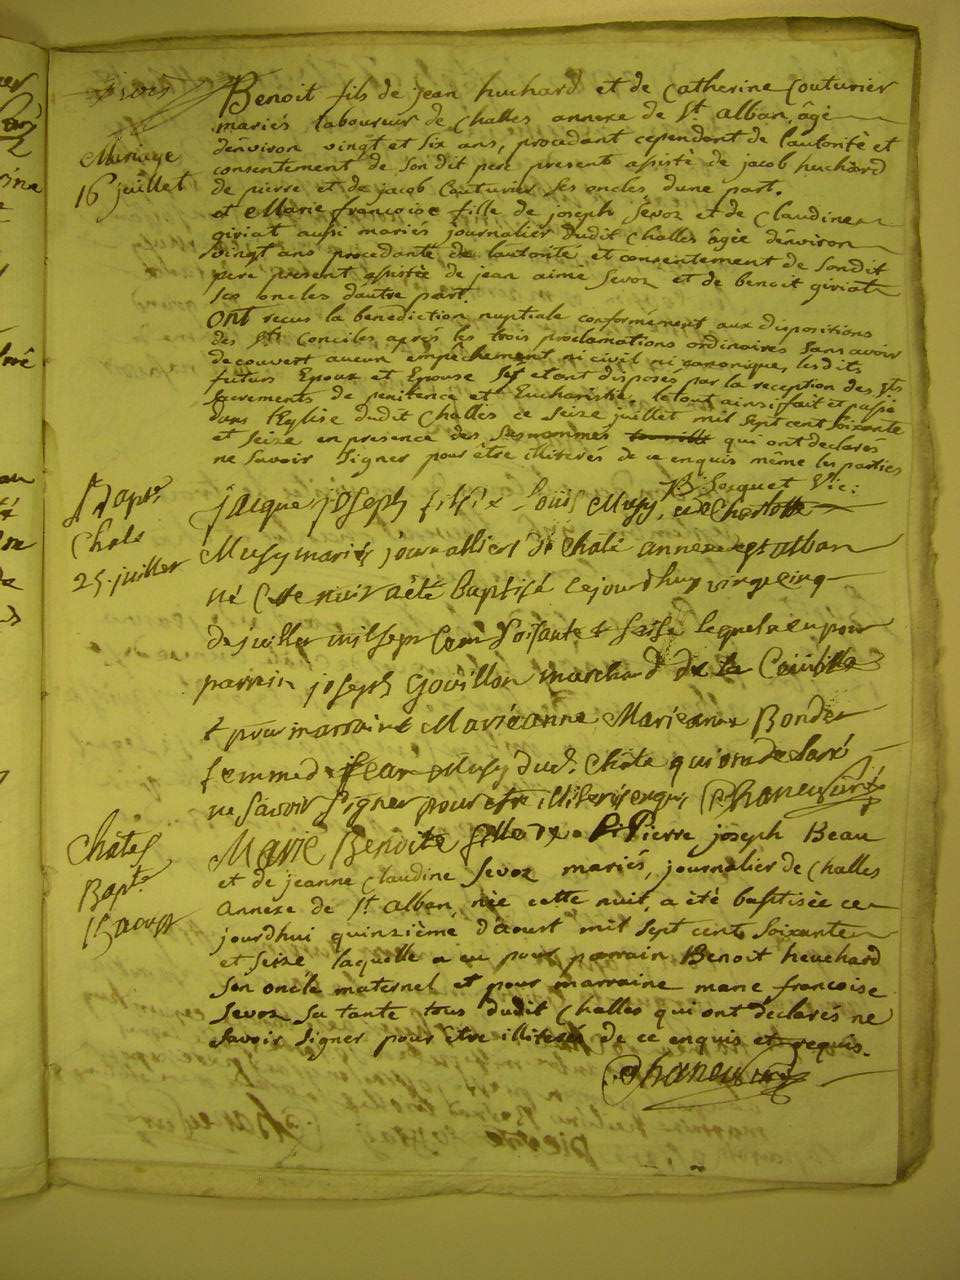 Mariage
16 juillet
Benoit fils de jean huchard et de Catherine Couturier
mariés laboureur de Challes annexe de St. alban, âgé
dénviron vingt et six ans, procedant cependant de l'autorité et
consentement de son dit pere present assisté de jacob huchard
de pierre et de jacob Couturier ses oncles dune part.
et Marie francoise fille de joseph sevoz et de Claudine
giriat aussi mariés journalier dudit Challes âgée dénviron
vingt ans procedante de lautorité et consentement de sondit
pere present assistée de jean aime sevoz et de benoit giriat
ses oncles dautre part.
Ont recus la benediction nuptiale conformément aux dispositions
des sts Conciles après les trois proclamations ordinaires sans avoir
decouvert aucun empêchement ni civil ni canonique, lesdits
futurs Epoux et Epouse s'et etant disposés par la reception des sts
sacrements de penitence et Eucharistie. le tout ainsi fait et passé
dans l'Eglise dudit Challes ce seize juillet mil sept cent soixante
et seize en presence des susnommés qui ont declarés
ne savoir signer pour être illiterés de ce enquis même les parties
Vic:
Bapte
Chale
25. juillet
jacque joseph fils de Louis Musy, et de Charlotte
Musy mariés journalliers de Chale annexe de st alban
né cette nuit a été baptisé cejourdhuy vingt cinq
de juillet mil sept cent soisante & saise lequel a eu pour
parrain joseph Govillon marchand de la
& pour marraine Marieanne Marieanne Bonder
femme de jean Musy dud. Châle qui ont declaré
ne savoir signer pour être illiterés enquis
Châles
Bapte
15 aoust
Marie Benoite fille de Pierre joseph Beau
et de jeanne Claudine sevoz mariés, journalier de Challes
annexe de St alban, née cette nuit a été baptisée ce
jourdhui quinzième d'aoust mil sept cent soixante
et seize laquelle a eu pour parrain Benoit heuchard
son oncle maternel et pour marraine marie francoise
sevoz sa tante tous dudit Challes qui ont declarés ne
savoir signer pour être illiterés de ce enquis et requis.